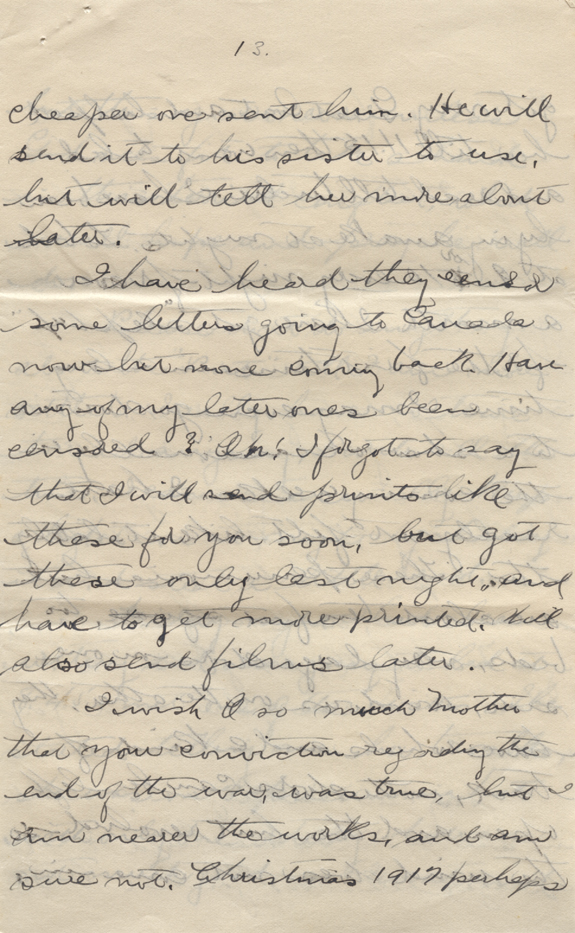 13.
cheaper one sent him. He will
send it to his sister to use,
but will tell her more about
later.
I have heard they censed
some letters going to Canada
now but none coming back. Have
any of my later ones been
censored? Oh! I forgot to say
that I will send prints like
these for you soon, but got
these only last night, and
have to get more printed. Will
also send films later.
I wish O so much Mother
that your conviction regarding the
end of the war, was true, but I
am nearer the works, and am
sure not. Christmas 1917 perhaps